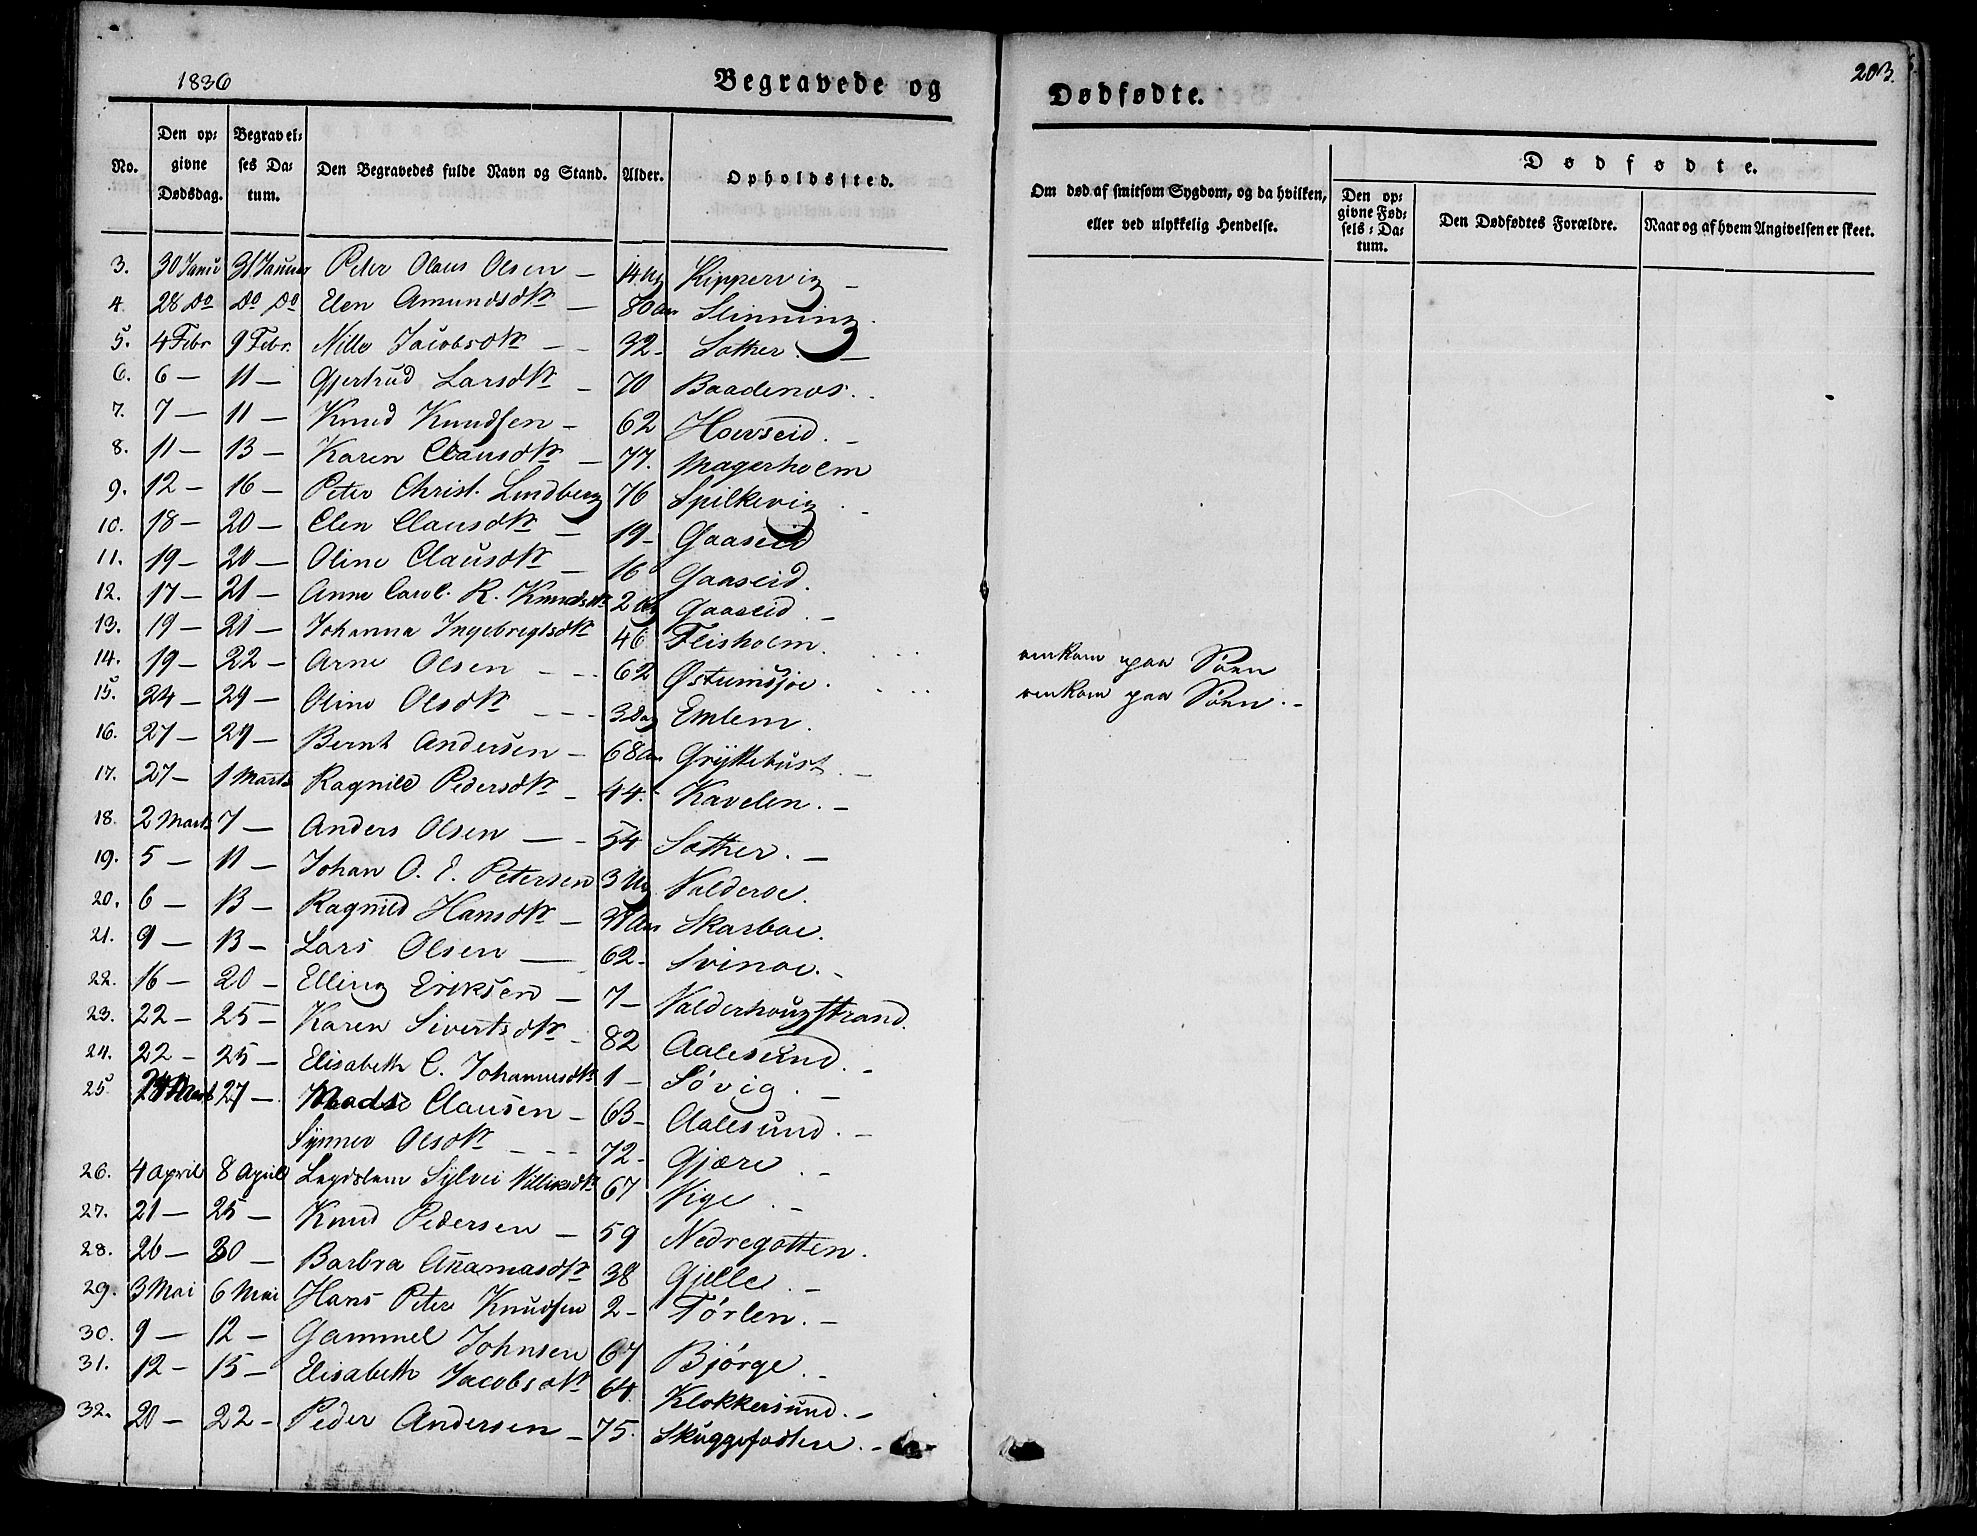 1836 Begravede og
Dødfødte. 203.
No. Den opgivne Dødsdag. Begravelses Datum. Den Begravedes fulde Navn og Stand. Alder. Opholdssted.
Om død af smitsom Sygdom, og da hvilken, eller ved ulykkelig Hendelse. Dødfødte. Den opgivne Fødsels-Datum. Den Dødfødtes Forældre. Naar og af hvem Angivelsen er skeet.
3. 30 Janu 31 Januar Peter Olaus Olsen – 14 Ug Kippervig –
4. 28 Do Do Do Elen Amundsdtr – 80 Aar Slinning.
5. 4 Febr 9 Febr. Nille Jacobsdtr – 32 – Sather. –
6. 6 – 11 – Gjertrud Larsdtr – 70 Baadenæs.
7. 7 – 11 – Knud Knudsen – 62 Hovseid. –
8. 11 – 13 – Karen Clausdtr – 77. Magerholm
9. 12 – 16 – Peter Christ. Lindberg 76 Spilkevig –
10. 18 – 20 – Elen Clausdtr – 19 – Gaaseid
11. 19 – 20 – Oline Clausdtr – 16 Gaaseid.
12. 17 – 21 – Anne Carol. R. Knudsdtr 2 Ug Gaaseid. –
13. 19 – 21 – Johanna Ingebregtsdtr 46 Flisholm. omkom paa Søen
14. 19 – 22 – Arne Olsen – 62 Østumsjøe. omkom paa Søen. –
15. 24 – 29 – Oline Olsdtr – 3 Dag Emlem.
16. 27 – 29 – Bernt Andersen – 68 Aar Gryttebust. –
17. 27 – 1 Marts Ragnild Pedersdtr – 44. Kavelen. –
18. 2 Marts 7 – Anders Olsen – 54 Sather. –
19. 5 – 11 – Johan O. E. Petersen 3 Ug Valderøe.
20. 6 – 13 – Ragnild Hansdtr – Aar Skarbøe.
21. 9 – 13 – Lars Olsen – 62 – Svinøe. –
22. 16 – 20 – Elling Eriksen – 7 – Valderhougstrand.
23. 22 – 25 – Karen Sivertsdtr – 82 Aalesund. –
24. 22 – 25 – Elisabeth C. Johannesdtr 1 – Søvig. –
25 24 Marts 27 – Mads Clausen – 63 – Aalesund. –
Synnev Olsdtr – 72 – Gjære. –
26. 4 April 8 April Legdslem Sylvei Villiksdtr 67 Vige. –
27. 21 – 25 – Knud Pedersen – 59 Nedregotten.
28. 26 – 30 – Barbra Ananiasdtr 38 Gjelle. –
29. 3 Mai 6 Mai Hans Peter Knudsen 2 – Tørlen. –
30. 9 – 12 – Gammel Johnsen 67 Bjørge. –
31. 12 – 15 – Elisabeth Jacobsdtr 64. Klokkersund. –
32. 20 – 22 – Peder Andersen – 75. Skuggefodten. –